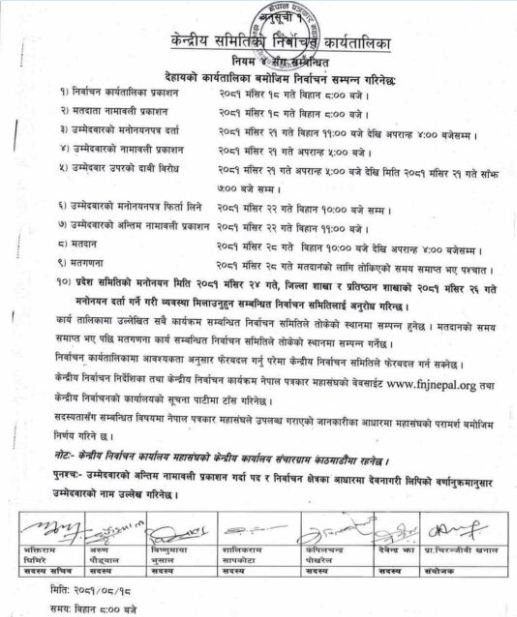 अनुसूची १
केन्द्रीय समितिको निर्वाचन कार्यतालिका
नियम ४ सँग सम्बन्धित
देहायको कार्यतालिका बमोजिम निर्वाचन सम्पन्न गरिनेछ:
१) निर्वाचन कार्यतालिका प्रकाशन २०८१ मंसिर १८ गते बिहान ८:०० बजे ।
२) मतदाता नामावली प्रकाशन २०८१ मंसिर १८ गते बिहान ८:०० बजे ।
३) उम्मेदवारको मनोनयनपत्र दर्ता २०८१ मंसिर २१ गते बिहान ११:०० बजे देखि अपरान्ह ४:०० बजेसम्म ।
४) उम्मेदवारको नामावली प्रकाशन २०८१ मंसिर २१ गते अपरान्ह ५:०० बजे ।
५) उम्मेदवार उपरको दावी विरोध २०८१ मंसिर २१ गते अपरान्ह ५:०० बजे देखि मिति २०८१ मंसिर २१ गते साँझ
७:०० बजे सम्म ।
६) उम्मेदवारको मनोनयनपत्र फिर्ता लिने २०८१ मंसिर २२ गते बिहान १०:०० बजे सम्म ।
७) उम्मेदवारको अन्तिम नामावली प्रकाशन २०८१ मंसिर २२ गते बिहान ११:०० बजे ।
८) मतदान २०८१ मंसिर २८ गते बिहान १०:०० बजे देखि अपरान्ह ४:०० बजेसम्म ।
९) मतगणना २०८१ मंसिर २८ गते मतदानको लागि तोकिएको समय समाप्त भए पश्चात ।
१०) प्रदेश समितिको मनोनयन मिति २०८१ मंसिर २४ गते, जिल्ला शाखा र प्रतिष्ठान शाखाको २०८१ मंसिर २६ गते
मनोनयन दर्ता गर्ने गरी व्यवस्था मिलाउनुहुन सम्बन्धित निर्वाचन समितिलाई अनुरोध गरिन्छ ।
कार्य तालिकामा उल्लेखित सबै कार्यक्रम सम्बन्धित निर्वाचन समितिले तोकेको स्थानमा सम्पन्न हुनेछ । मतदानको समय
समाप्त भए पछि मतगणना कार्य सम्बन्धित निर्वाचन समितिले तोकेको स्थानमा सम्पन्न गर्नेछ ।
निर्वाचन कार्यतालिकामा आवश्यकता अनुसार फेरबदल गर्नु परेमा केन्द्रीय निर्वाचन समितिले फेरबदल गर्न सक्नेछ ।
केन्द्रीय निर्वाचन निर्देशिका तथा केन्द्रीय निर्वाचन कार्यक्रम नेपाल पत्रकार महासंघको वेवसाईट www.fnjnepal.org तथा
केन्द्रीय निर्वाचनको कार्यालयको सूचना पाटीमा टाँस गरिनेछ ।
सदस्यतासँग सम्बन्धित विषयमा नेपाल पत्रकार महासंघले उपलब्ध गराएको जानकारीका आधारमा महासंघको परामर्श बमोजिम
निर्णय गरिने छ ।
नोटः- केन्द्रीय निर्वाचन कार्यालय महासंघको केन्द्रीय कार्यालय संचारग्राम काठमाडौंमा रहनेछ ।
पुनश्चः- उम्मेदवारको अन्तिम नामावली प्रकाशन गर्दा पद र निर्वाचन क्षेत्रका आधारमा देवनागरी लिपिको वर्णानुक्रमानुसार
उम्मेदवारको नाम उल्लेख गरिनेछ ।
भक्तिराम अरुण विष्णुमाया शालिकराम कपिलचन्द्र देवेन्द्र झा प्रा.चिरञ्जीवी खनाल
घिमिरे पौड्याल भुसाल सापकोटा पोखरेल
सदस्य सचिव सदस्य सदस्य सदस्य सदस्य सदस्य संयोजक
मिति: २०८१/०८/१८
समय: बिहान ८:०० बजे